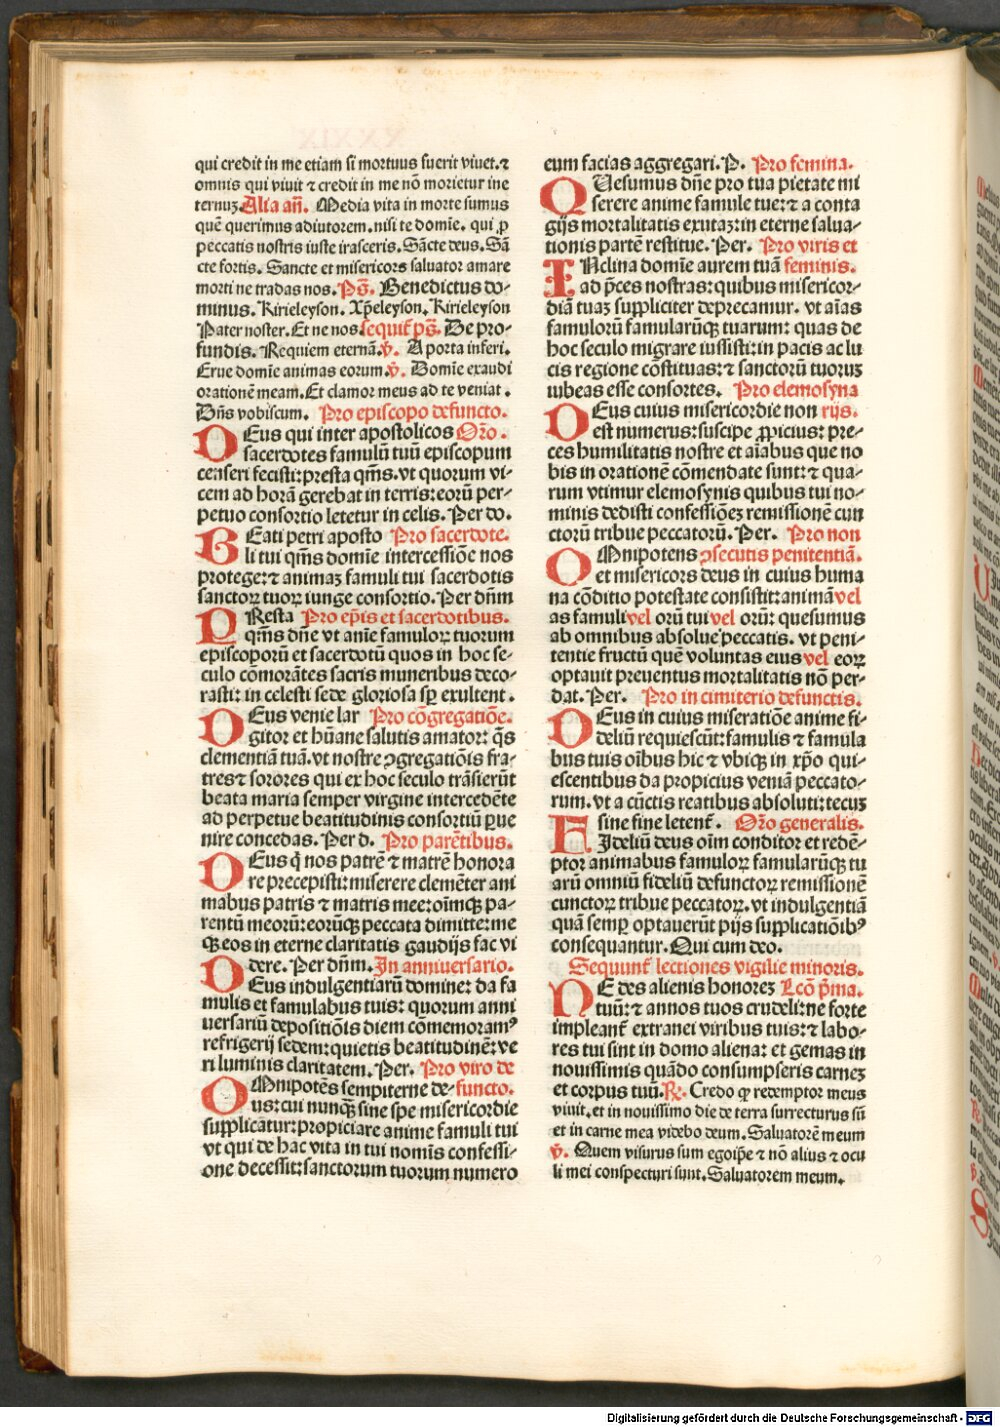 qui credit in me etiam si mortuus fuerit viuet. ⁊
omnis qui viuit ⁊ credit in me nō morietur ine
ternuꝫ. Alia añ. Media vita in morte sumus
quē querimus adiutorem. nisi te domīe. qui ꝓ
peccatis nostris iuste irasceris. Sācte deus. Sā
cte fortis. Sancte et misericors saluator amare
morti ne tradas nos. Pš. Benedictus do-
minus. Kirieleyson. Xp̄eleyson. Kirieleyson
Pater noster. Et ne nos. sequit̄ pš. De pro-
fundis. Requiem eternā. ꝟ. A porta inferi.
Erue domīe animas eorum. ꝟ. Domīe exaudi
orationē meam. Et clamor meus ad te veniat.
Dn̄s vobiscum. Pro episcopo defuncto.
DEus qui inter apostolicos Oro.
sacerdotes famulū tuū episcopum
censeri fecisti: presta qm̄s. vt quorum vi-
cem ad horā gerebat in terris: eorū per-
petuo consortio letetur in celis. Per do.
BEati petri aposto Pro sacerdote.
li tui qm̄s domīe intercessiōe nos
protege: ⁊ animaꝫ famuli tui sacerdotis
sanctoꝝ tuoꝝ iunge consortio. Per dn̄m
PResta Pro ep̄is et sacerdotibus.
qm̄s dn̄e vt anīe famuloꝝ tuorum
episcoporū et sacerdotū quos in hoc se-
culo cōmorātes sacris muneribus deco-
rasti: in celesti sede gloriosa sꝑ exultent.
DEus venie lar Pro cōgregatiōe.
gitor et hūane salutis amator: q̄s
clementiā tuā. vt nostre ꝯgregatiōis fra-
tres ⁊ sorores qui ex hoc seculo trāsierūt
beata maria semper virgine intercedēte
ad perpetue beatitudinis consortiū ꝑue
nire concedas. Per d. Pro parētibus.
DEus q̇ nos patrē ⁊ matrē honora
re precepisti: miserere clemēter ani
mabus patris ⁊ matris mee: oīmqꝫ pa-
rentū meorū: eorūqꝫ peccata dimitte: me
qꝫ eos in eterne claritatis gaudijs fac vi
dere. Per dn̄m. In anniuersario.
DEus indulgentiarū domine: da fa
mulis et famulabus tuis: quorum anni
uersariū depositiōis diem cōmemoramꝰ
refrigerij sedem: quietis beatitudinē: ve
ri luminis claritatem. Per. Pro viro de
OMnipotēs sempiterne de- functo.
us: cui nunqꝫ̄ sine spe misericordie
supplicātur: propiciare anime famuli tui
vt qui de hac vita in tui nomīs confessi-
one decessit: sanctorum tuorum numero
eum facias aggregari. P. Pro femina.
QUesumus dn̄e pro tua pietate mi
serere anime famule tue: ⁊ a conta
gijs mortalitatis exutaꝫ: in eterne salua-
tionis partē restitue. Per. Pro viris et
INclina domīe aurem tuā feminis.
ad p̄ces nostras: quibus misericor-
diā tuaꝫ suppliciter deprecamur. vt aīas
famulorū famularūqꝫ tuarum: quas de
hoc seculo migrare iussisti: in pacis ac lu
cis regione cōstituas: ⁊ sanctorū tuoruꝫ
iubeas esse consortes. Pro elemosyna
DEus cuius misericordie non rijs.
est numerus: suscipe ꝓpicius: pre-
ces humilitatis nostre et aīabus que no
bis in orationē cōmendate sunt: ⁊ qua-
rum vtimur elemosynis quibus tui no-
minis dedisti confessionēꝫ remissionē cun
ctorū tribue peccatorū. Per. Pro non
OMnipotens ꝯsecutis penitentiā.
et misericors deus in cuius huma
na cōditio potestate consistit: animā vel
as famuli vel orū tui vel orū: quesumus
ab omnibus absolue peccatis. vt peni-
tentie fructū quē voluntas eius vel eoꝝ
optauit preuentus mortalitatis nō per-
dat. Per. Pro in cimiterio defunctis.
DEus in cuius miseratiōe anime fi-
deliū requiescūt: famulis ⁊ famula
bus tuis oībus hic ⁊ vbiqꝫ in xp̄o qui-
escentibus da propicius veniā peccato-
rum. vt a cūctis reatibus absoluti: tecuꝫ
sine fine letent̄. Oro generalis.
FIdeliū deus oīm conditor et redē-
ptor animabus famuloꝝ famularūqꝫ tu
arū omniū fideliū defunctoꝝ remissionē
cunctoꝝ tribue peccatoꝝ. vt indulgentiā
quā semꝑ optauerūt pijs supplicatiōibꝰ
consequantur. Qui cum deo.
Sequunt̄ lectiones vigilie minoris.
NE des alienis honoreꝫ Lcō p̄ma.
tuū: ⁊ annos tuos crudeli: ne forte
impleant̄ extranei viribus tuis: ⁊ labo-
res tui sint in domo aliena: et gemas in
nouissimis quādo consumpseris carneꝫ
et corpus tuū. ℟. Credo ꝙ redemptor meus
viuit. et in nouissimo die de terra surrecturus sū
et in carne mea videbo deum. Saluatorē meum
ꝟ. Quem visurus sum egoip̄e ⁊ nō alius ⁊ ocu
li mei conspecturi sunt. Saluatorem meum.
Digitalisierung gefördert durch die Deutsche Forschungsgemeinschaft - DFG